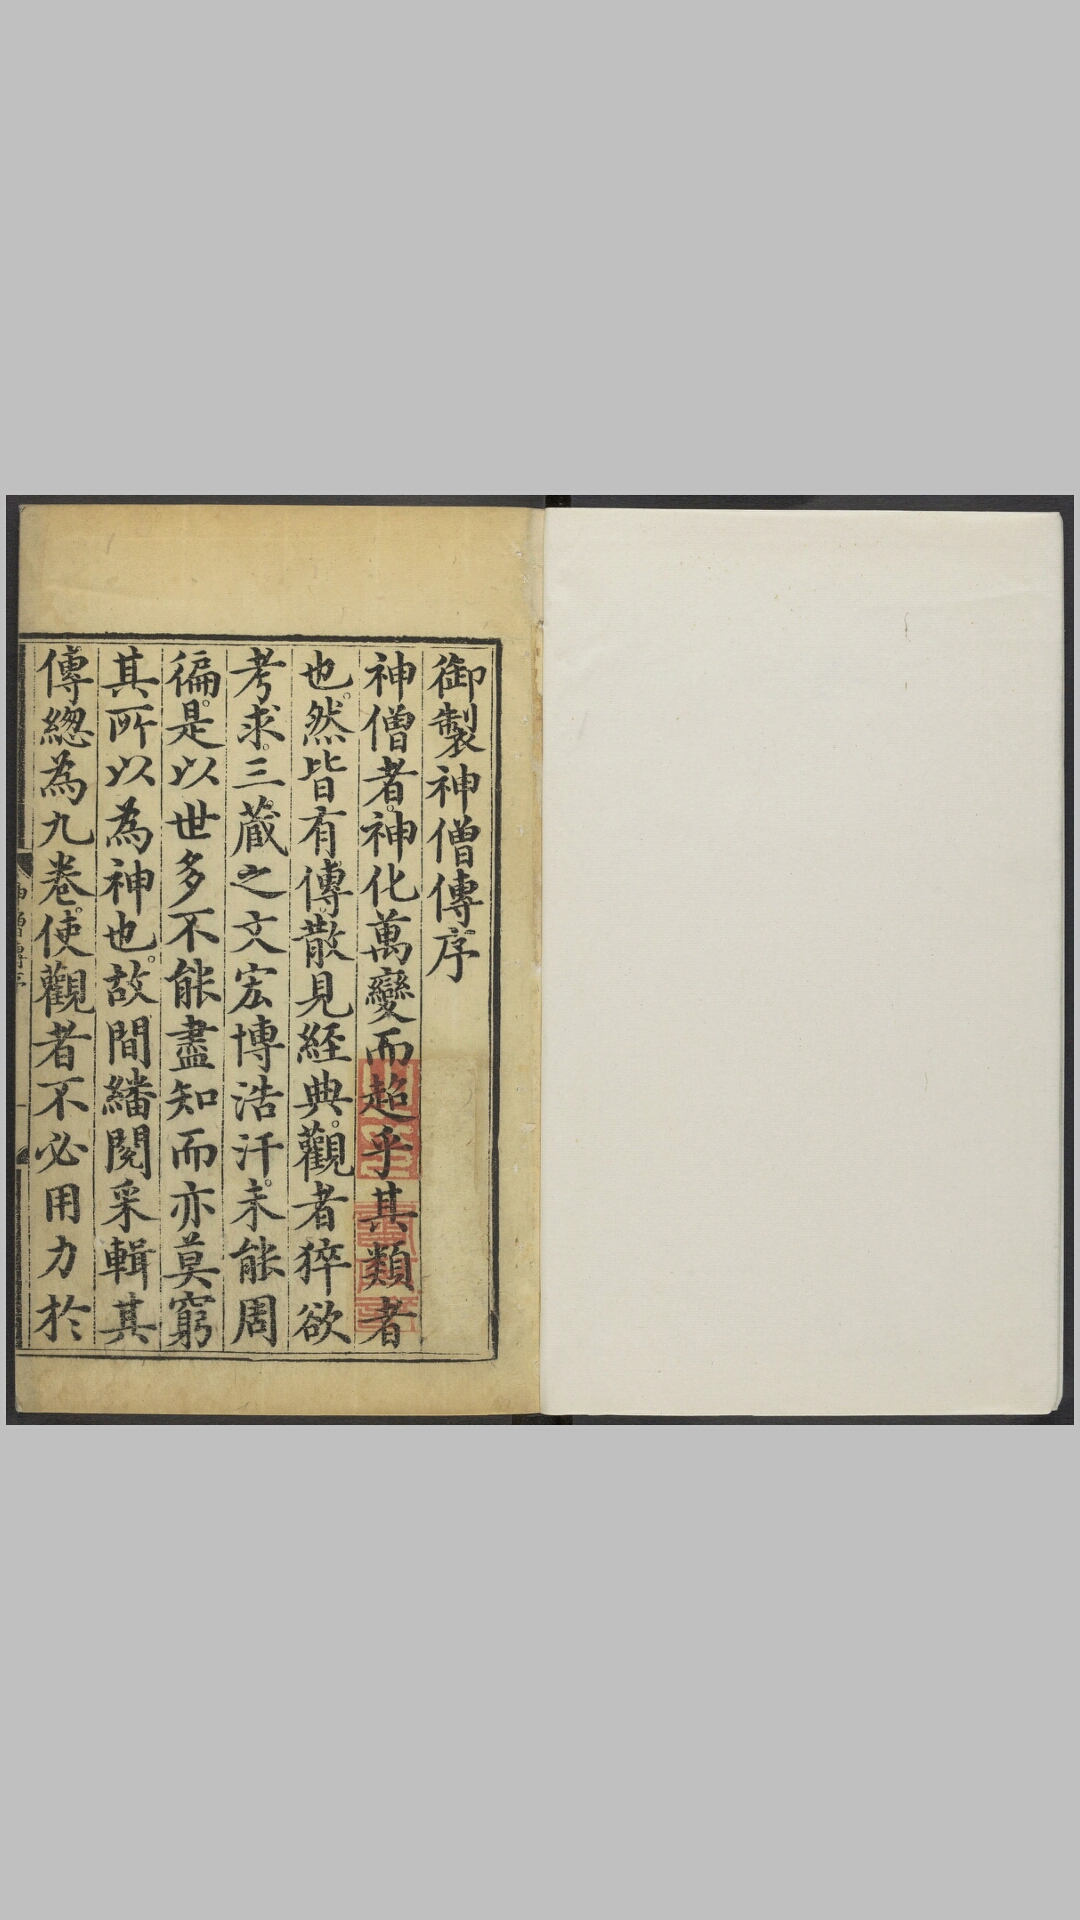 御製神僧傳序
神僧者。神化萬變而超乎其類者
也。然皆有傳。散見經典。觀者猝欲
考求。三藏之文宏博浩汗。未能周
徧。是以世多不能盡知而亦莫窮
其所以為神也。故間繙閱采輯其
傳總為九卷。使觀者不必用力於